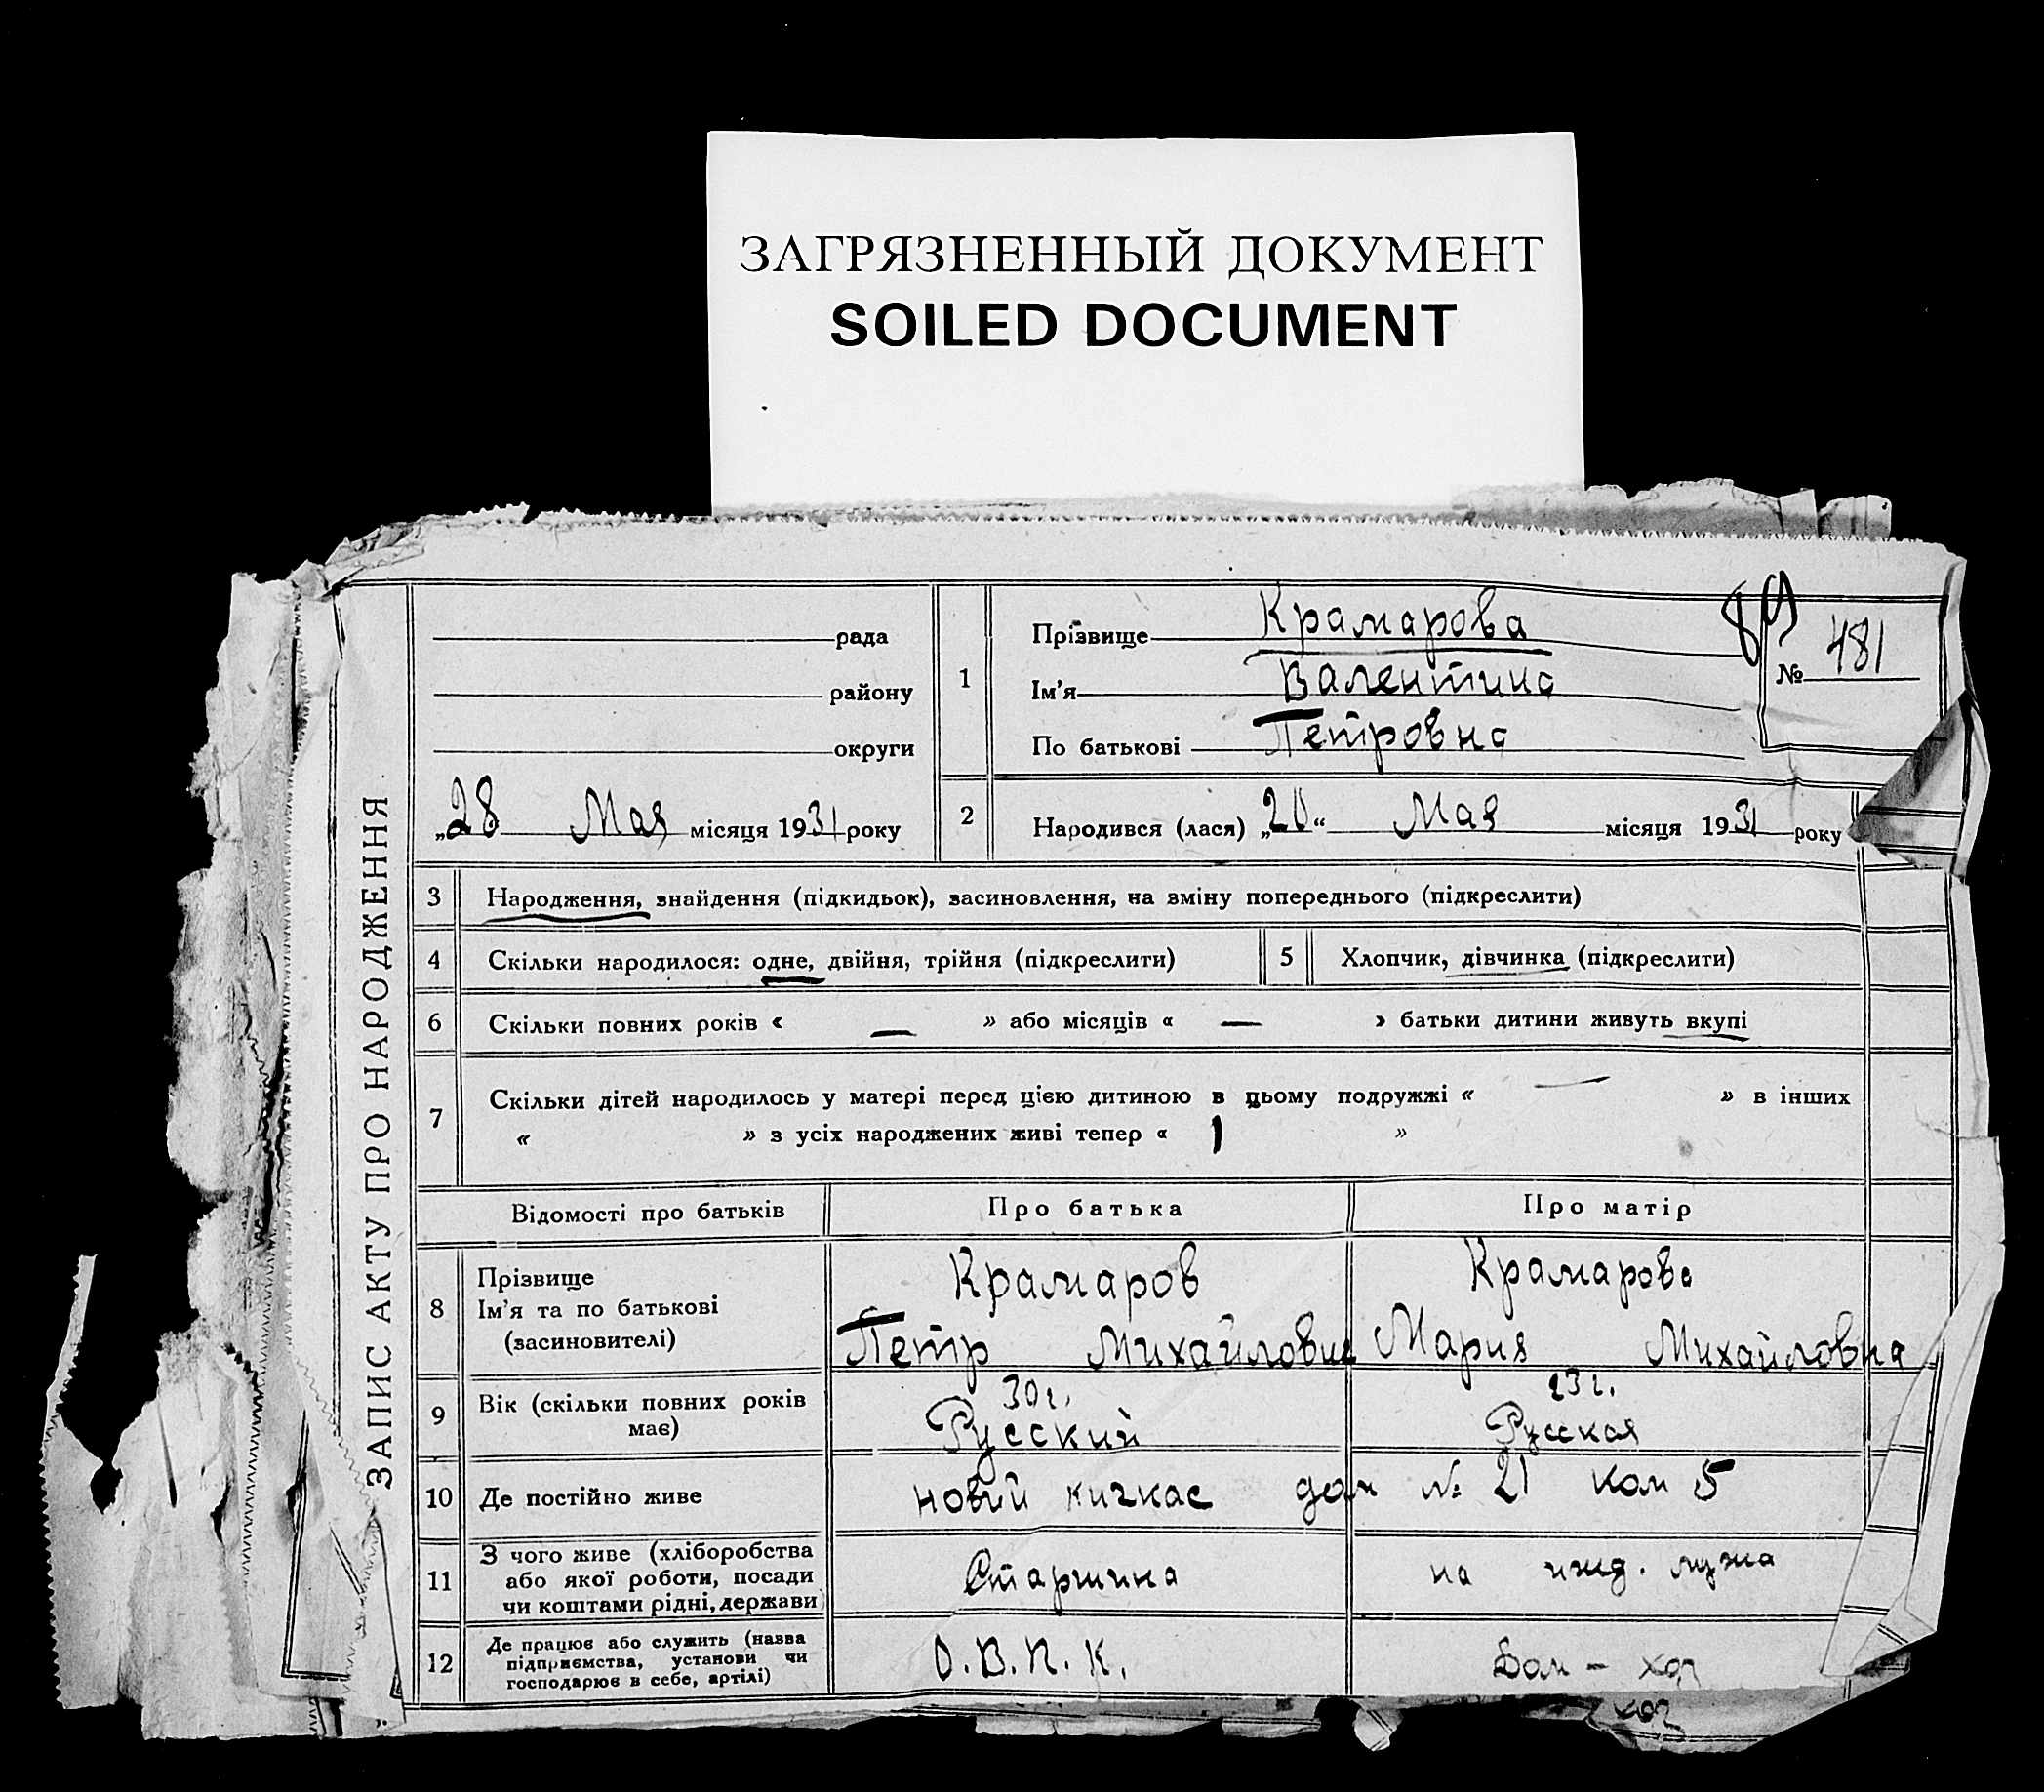 ЗАГРЯЗНЕННЫЙ ДОКУМЕНТ
SOILED DOCUMENT
ЗАПИС АКТУ ПРО НАРОДЖЕННЯ
рада
району
округи
„28 Мая місяця 1931 року
1
Прізвище Крамарова
Ім'я Валентина
По батькові Петровна
№ 481
2 Народився (лася) „20“ Мая місяця 1931 року
3 Народження, знайдення (підкидьок), засиновлення, на зміну попереднього (підкреслити)
4 Скільки народилося: одне, двійня, трійня (підкреслити) 5 Хлопчик, дівчинка (підкреслити)
6 Скільки повних років « — » або місяців « — » батьки дитини живуть вкупі
7 Скільки дітей народилось у матері перед цією дитиною в цьому подружжі « — » в інших
« » з усіх народжених живі тепер « 1 »
Відомості про батьків Про батька Про матір
8 Прізвище
Ім'я та по батькові
(засиновителі)
Крамаров
Петр Михайлович
Крамарова
Мария Михайловна
9 Вік (скільки повних років
має)
30 г.
Русский
23 г.
Русская
10 Де постійно живе новий кичкас дом № 21 ком 5
11 З чого живе (хліборобства
або якої роботи, посади
чи коштами рідні, держави
Старшина
на ижд. мужа
12 Де працює або служить (назва
підприємства, установи чи
господарює в себе, артілі)
О.В.П.К.
Дом - хоз
хоз